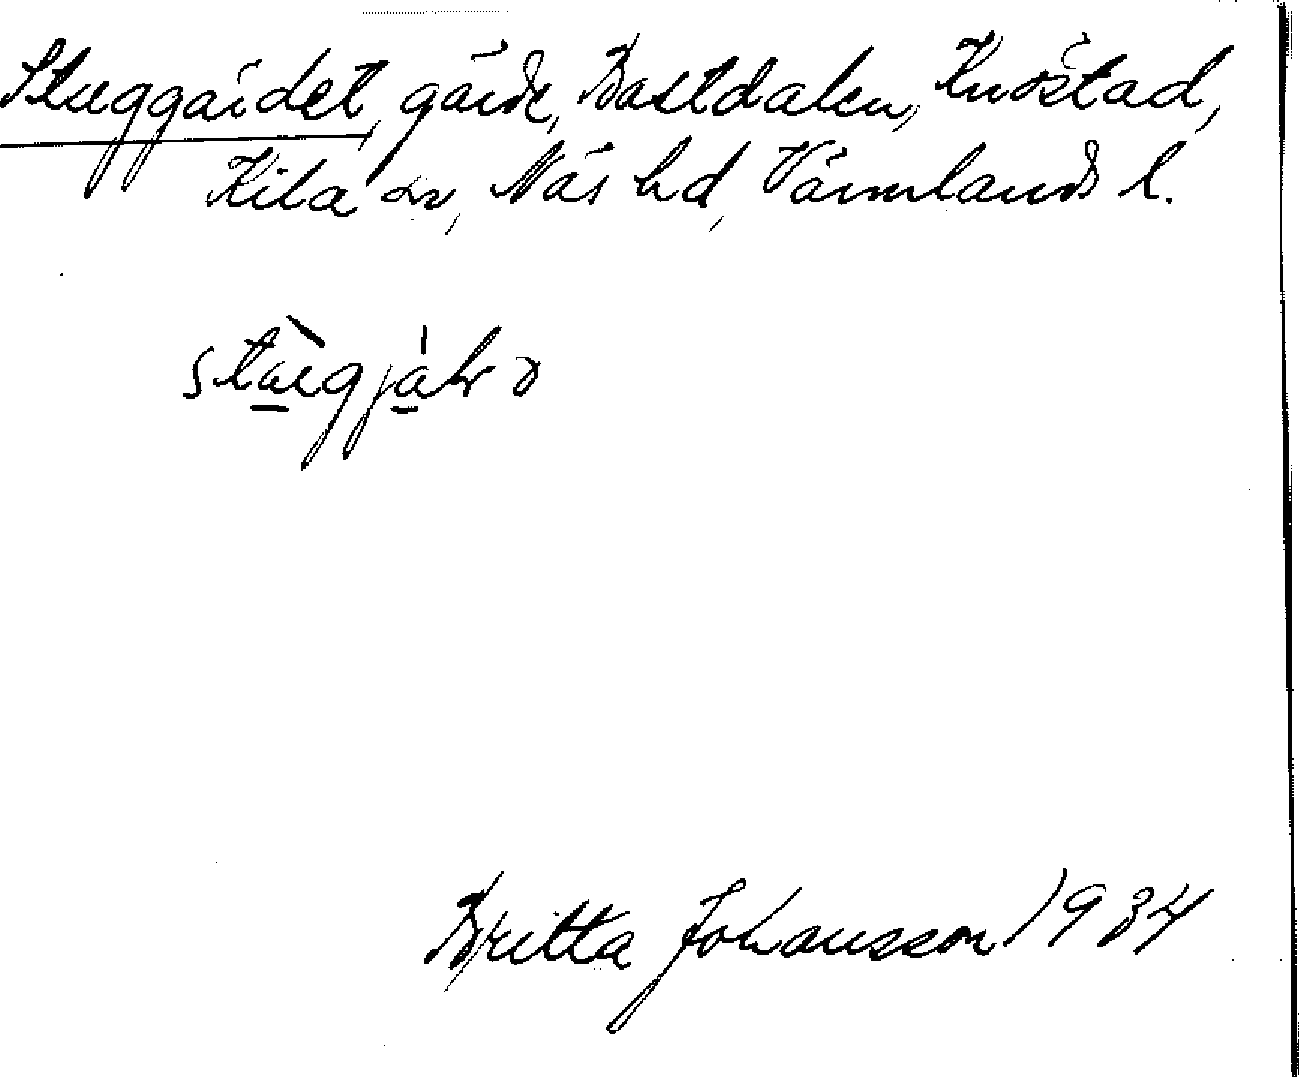 Stuggärdet, gärde, Bastdalen, Knöstad,
Kila sn, Näs hd, Värmlands l.
Britta Johansson 1934